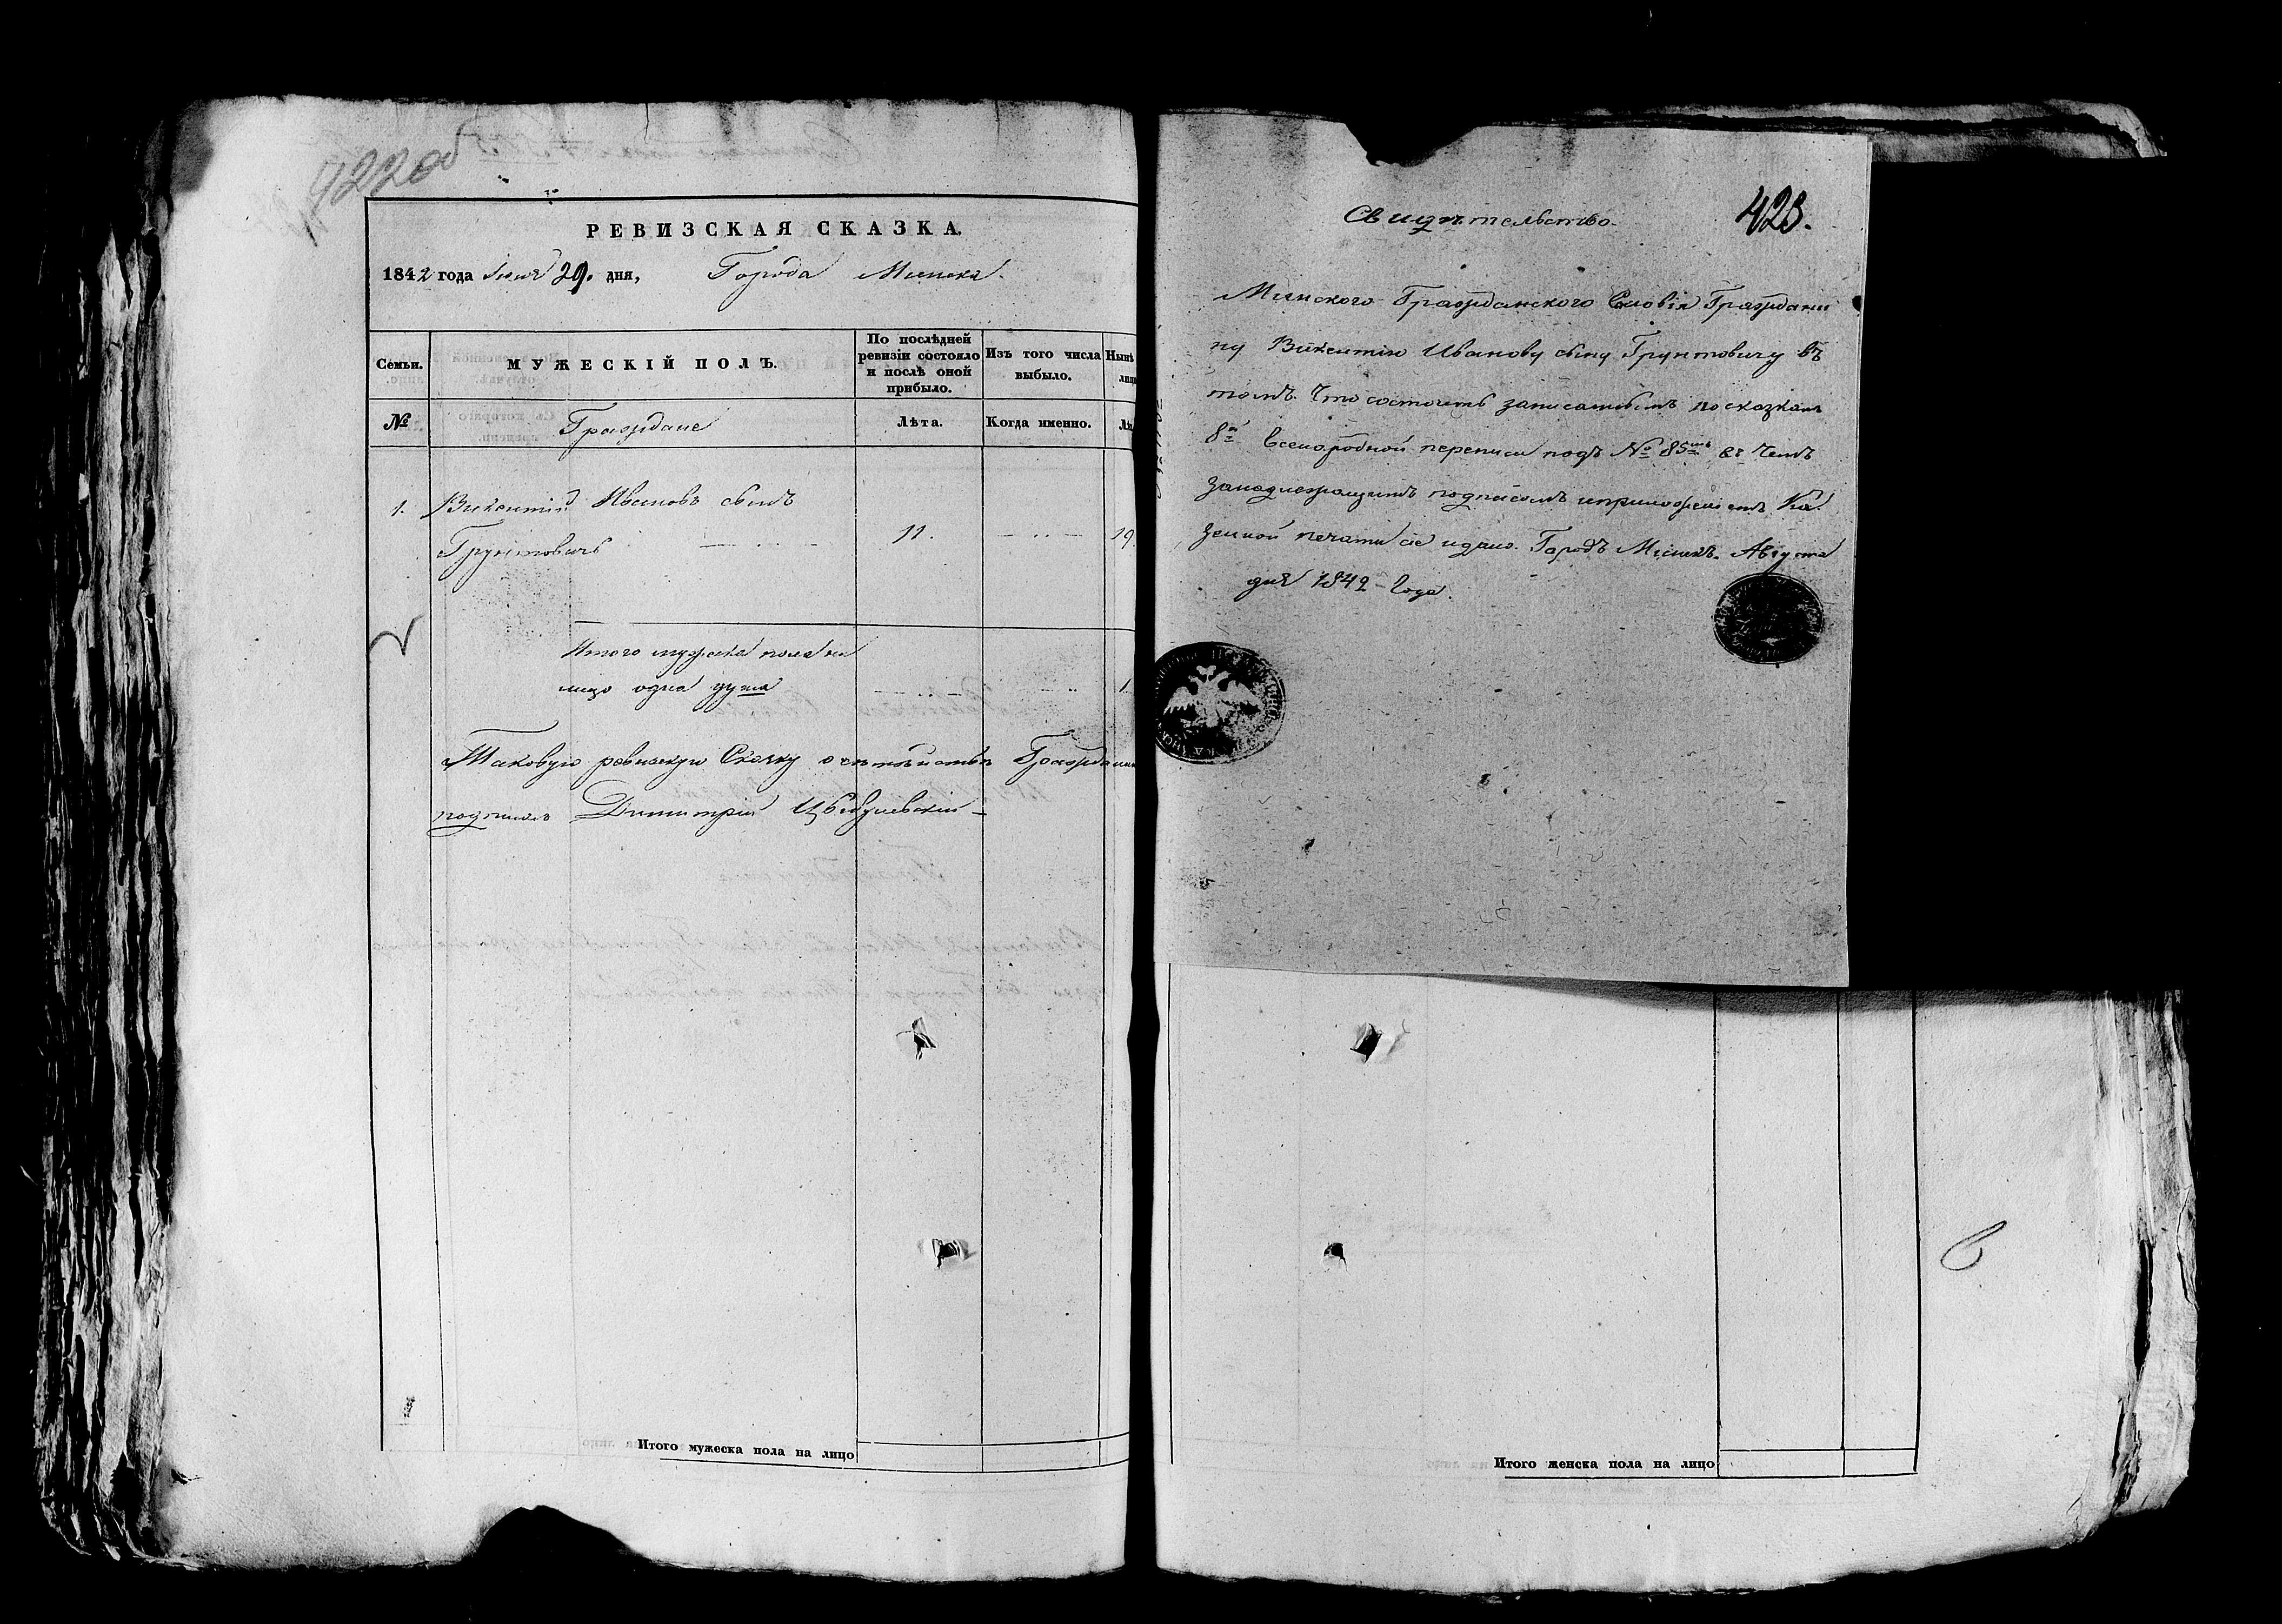 422об
РЕВИЗСКАЯ СКАЗКА.
1842 года Iюня 29. дня, Города Минска.
Семьи.
МУЖЕСКIЙ ПОЛЪ.
По послѣдней ревизiи состояло и послѣ оной прибыло.
Изъ того числа выбыло.
Нынѣ лицо
№
Граждане
Лѣта.
Когда именно.
Лѣ
1. Викентiй Ивановъ сынъ
Грунтовичъ 11. 19.
Итого мужеска пола на
лицо одна душа 1
Таковую ревизскую Сказку о семействѣ Гражданин
подписалъ Димитрiй
Итого мужеска пола на лицо
423.
Свидѣтельство.
Минскаго Гражданскаго Сословiя Граждани
ну Викентiю Иванову сыну Грунтовичу въ
томъ. Что состоитъ записаннымъ по сказкамъ
8й всенародной переписи подъ № 85мъ въ чемъ
За надлежащимъ подписомъ и приложенiемъ Ка
зенной печати сiе издано. Городъ Минскъ. Августа
дня 1842 Года.
Итого женска пола на лицо